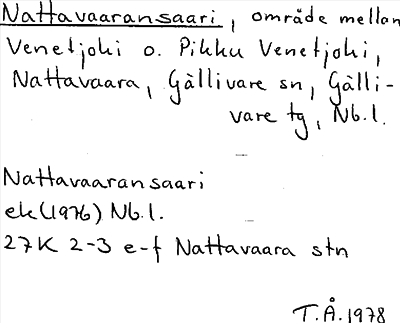 Nattavaaransaari, område mellan
Venetjoki o. Pikku Venetjoki,
Nattavaara, Gällivare sn, Gälli-
vare tg, Nb.l.
Nattavaaransaari
ek(1976) Nb.l.
27K 2-3 e-f Nattavaara stn
T.Å.1978